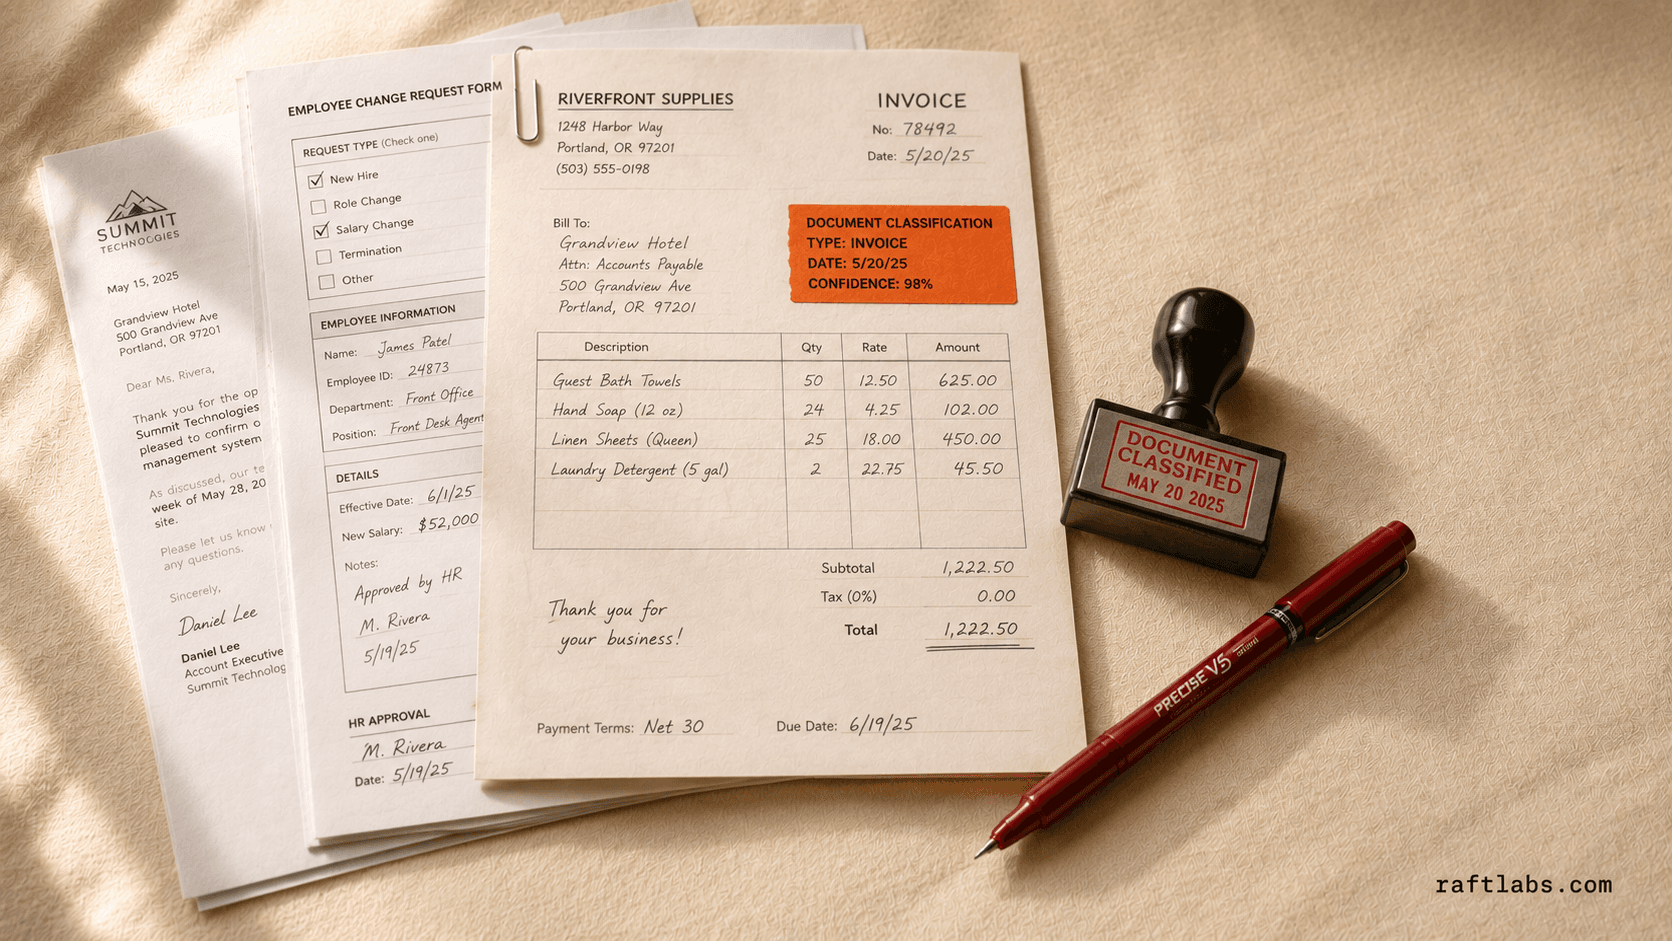 SUMMIT
TECHNOLOGIES
May 15, 2025
Grandview Hotel
500 Grandview Ave
Portland, OR 97201
Dear Ms. Rivera,
Thank you for the op
Summit Technologies
pleased to confirm o
management system
As discussed, our te
week of May 28, 20
site.
Please let us know
any questions.
Sincerely,
Daniel Lee
Daniel Lee
Account Executive
Summit Technolog
EMPLOYEE CHANGE REQUEST FORM
REQUEST TYPE (Check one)
New Hire
Role Change
Salary Change
Termination
Other
EMPLOYEE INFORMATION
Name: James Patel
Employee ID: 24873
Department: Front Office
Position: Front Desk Agent
DETAILS
Effective Date: 6/1/25
New Salary: $52,000
Notes:
Approved by HR
M. Rivera
5/19/25
HR APPROVAL
M. Rivera
Date: 5/19/25
RIVERFRONT SUPPLIES
1248 Harbor Way
Portland, OR 97201
(503) 555-0198
INVOICE
No: 78492
Date: 5/20/25
Bill To:
Grandview Hotel
Attn: Accounts Payable
500 Grandview Ave
Portland, OR 97201
DOCUMENT CLASSIFICATION
TYPE: INVOICE
DATE: 5/20/25
CONFIDENCE: 98%
Description Qty Rate Amount
Guest Bath Towels 50 12.50 625.00
Hand Soap (12 oz) 24 4.25 102.00
Linen Sheets (Queen) 25 18.00 450.00
Laundry Detergent (5 gal) 2 22.75 45.50
Subtotal 1,222.50
Tax (0%) 0.00
Total 1,222.50
Thank you for
your business!
Payment Terms: Net 30 Due Date: 6/19/25
DOCUMENT
CLASSIFIED
MAY 20 2025
PRECISE V5
raftlabs.com